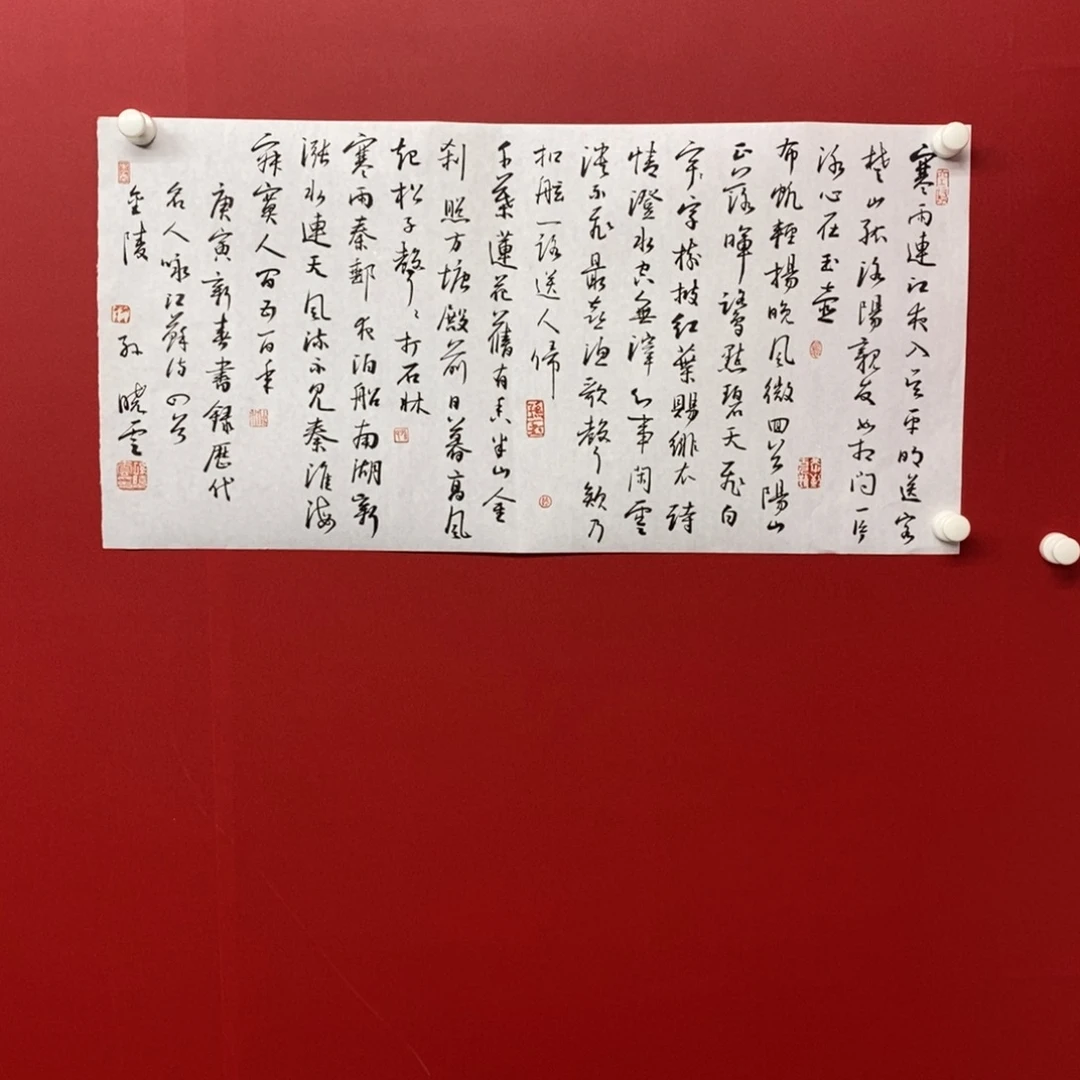 寒雨連江夜入吴平明送客
楚山孤洛陽親友如相问一片
冰心在玉壺
布帆輕揚晚風微回首陽山
正落暉鷺點碧天飛白
字樹披紅葉賜緋衣詩
情澄水空無滓心事閑雲
淡不飛最喜漁歌聲欸乃
扣舷一路送人歸
千葉蓮花舊有香半山金
刹照方塘殿前日暮高風
起松子聲〻打石牀
寒雨秦郵夜泊船南湖新
漲水連天風流不見秦淮海
寂寞人間五百年
庚寅新春書録歷代
名人咏江蘇詩四首
金陵 孙晓雲